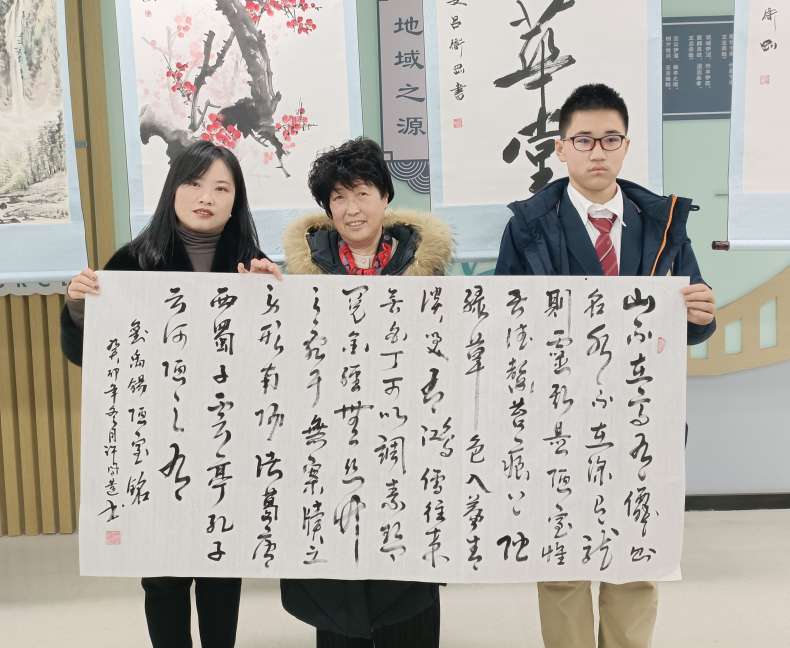 地域之源
華堂
山不在高有僊則
名水不在深有龍
則靈斯是陋室惟
吾德馨苔痕上階
綠草色入簾青
談笑有鴻儒往來
無白丁可以調素琴
閱金經無絲竹
之亂耳無案牘之
勞形南陽諸葛廬
西蜀子雲亭孔子
云何陋之有
劉禹錫陋室銘
癸卯年冬月許 書